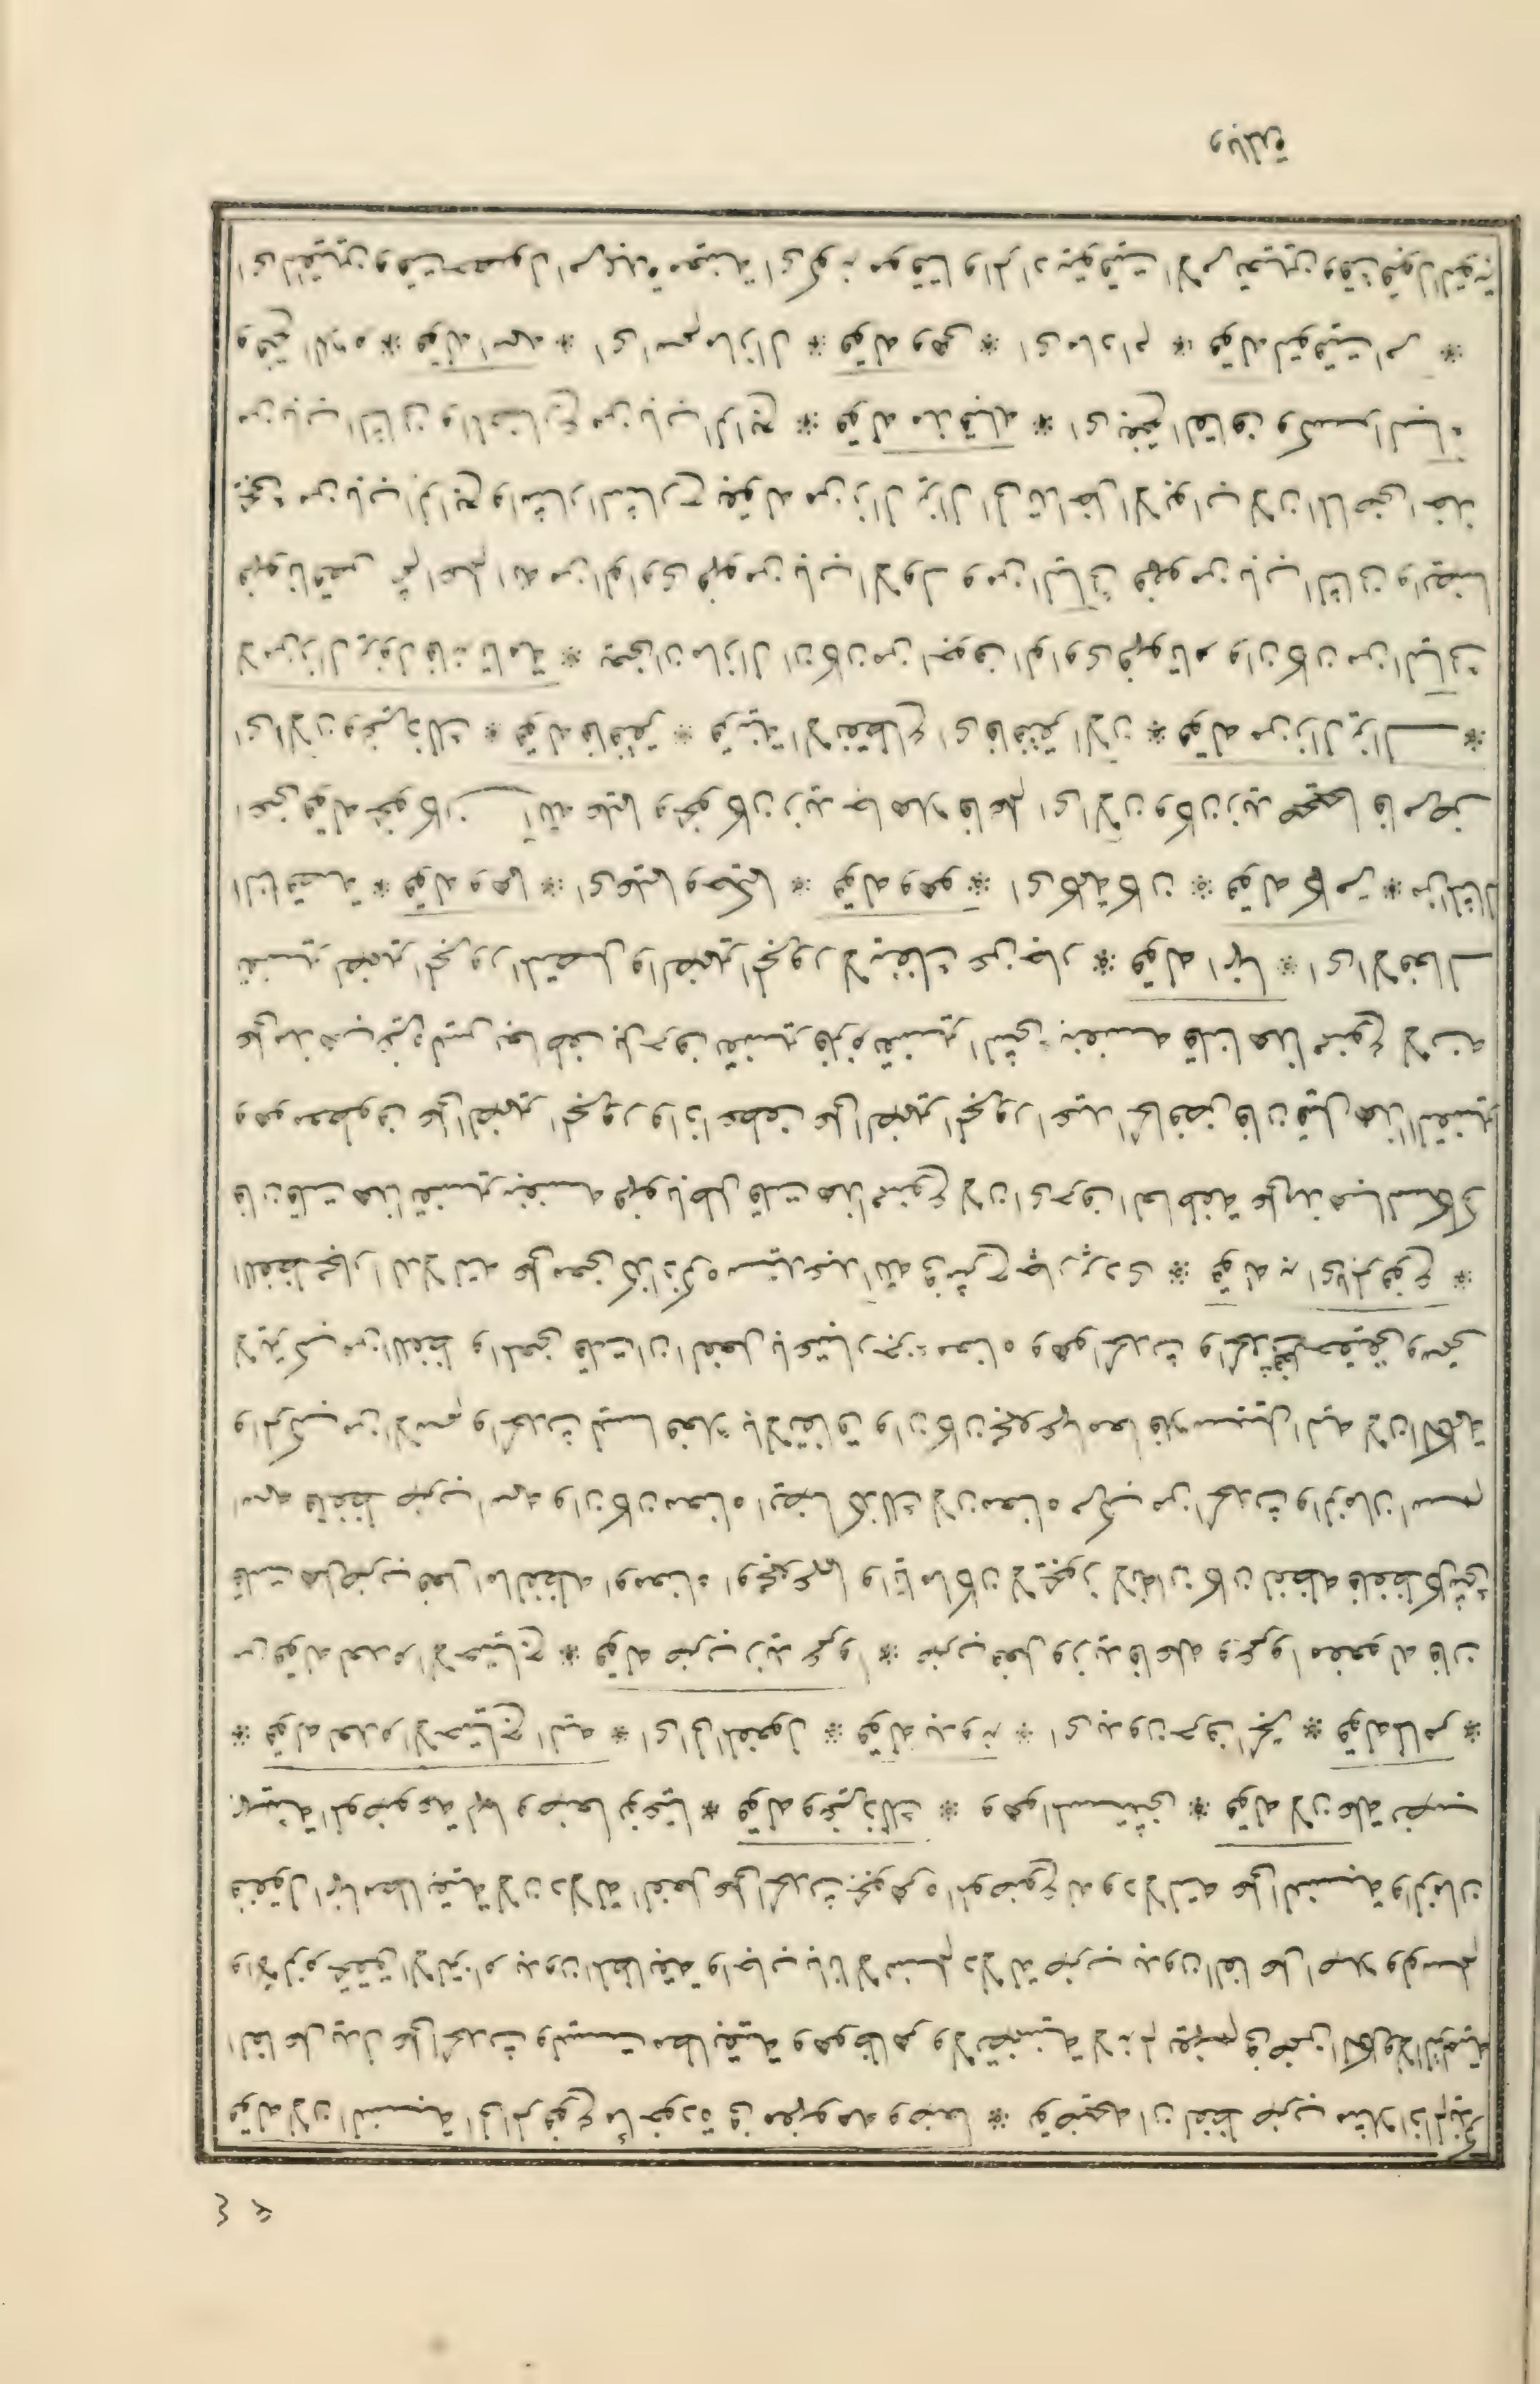 قوله لان النسبة الى المرفوع مأخوذة فى مفهومه وضعا * توضيحه ان لفظ ضرب مثلا اذا لم يذكر
يدل على الحدث وليست مطابقية وهو ظاهر ولا تضمنية لانه لم يفهم فى ضمن الكل ولا التزامية
والا لزم تحقق الالتزام بدون المطابقة واجاب بانا لا نسلم دلالة ضرب بدون الفاعل اصلا ولو سلم
فنقول انها مطابقية لان دلالة الفعل على الحدث بجوهره الموضوع له ودلالته على النسبة والزمان
بهيئته الموضوعة لها وضعا نوعيا * قوله وغير ذلك * وهو المستثنى * قوله لان علة نصب
* قوله لعدم الاحتياج اليه * اى الى المفعول * قوله بدونه * اى بدون حرف الجر * قوله كما مر *
من قوله لعدم الاحتياج * قوله ضرب زيد عمروا * ضرب فعل وزيد فاعله وعمروا مفعوله فان
قلت هل ضرب فعل اما لفظه او معناه او مجموعهما وايا ما كان لا يجوز لانه ان كان لفظه فلفظه كل شئ
اسمه فلفظ ضرب اسمه وان كان معناه ايضا كذلك لان معناه مركب من الحدث والزمان اسم
والمركب من الاسم والحدث ليسا فعلا بالاتفاق وان كان مجموعهما معا فلا سبيل اليه لان الكلمة
لا يتركب من اللفظ والمعنى قلت ان الفعل باعتبار جزء معناه وهو الحدث والحدث حقيقى
اللفظ مجاز الدلالته على معنى كذا ذكره سيد عبد الله فى شرح جار بردى * قوله به اى المرفوع *
فان قلت هذا تفسير بنفسه فهو باطل قلت هذا ممنوع لان اى حرف العاطفة على مذهب السكاكى
وهو معطوف على الضمير المجرور واذا عطفت على الضمير المجرور اعيد الخافض فان قيل هذا التفسير
على مذهب غيره ليس بعاطف بل حرف تفسير فلزم تفسير الشئ بنفسه قلنا هذا ممنوع لانه
تفسير الضمير المجرور المتصل والضمير المجرور لا ينفك عن جار * قوله انها * اى الافعال
الناقصة * قوله وهما * اى عليما وحكيما * قوله وهو * اى كلمة كان * قوله كما مر * من المثال
اعنى قوله نحو كان الله عليما ونحو كان زيد جاهلا فاعلم اى الان وكان زيد صحيحا فامرض
اى الان وغير ذلك * قوله فافتقر * قرينة الانقطاع اى فافتقر الان * قوله من زال يزال *
لا من زال يزول فانه تامة * يعنى ان ما زال ان كان من اجوف الواوى فهو تام وان كان من اليائى
فهو ناقص ثم اعلم انه من الواوى فهو من باب الاول ومن اليائى فهو من باب الثانى وايضا
يجئ من باب الرابع واشار الشارح بقوله من زال يزال الى تداخل الابواب لان الماضى اخذ
من باب الثانى والمضارع من باب الرابع * قوله مذ قبله * اى بفتح القاف وكسر الباء
وفتح اللام * قوله اسمه * اى اسم ما زال * قوله وهى * اى ما دام * قوله لتوقيت امر *
اى لتعيين وقت حصول امر بمدة معينة اى كونه موقتا والمراد بتوقيت الامر تعيين وقت